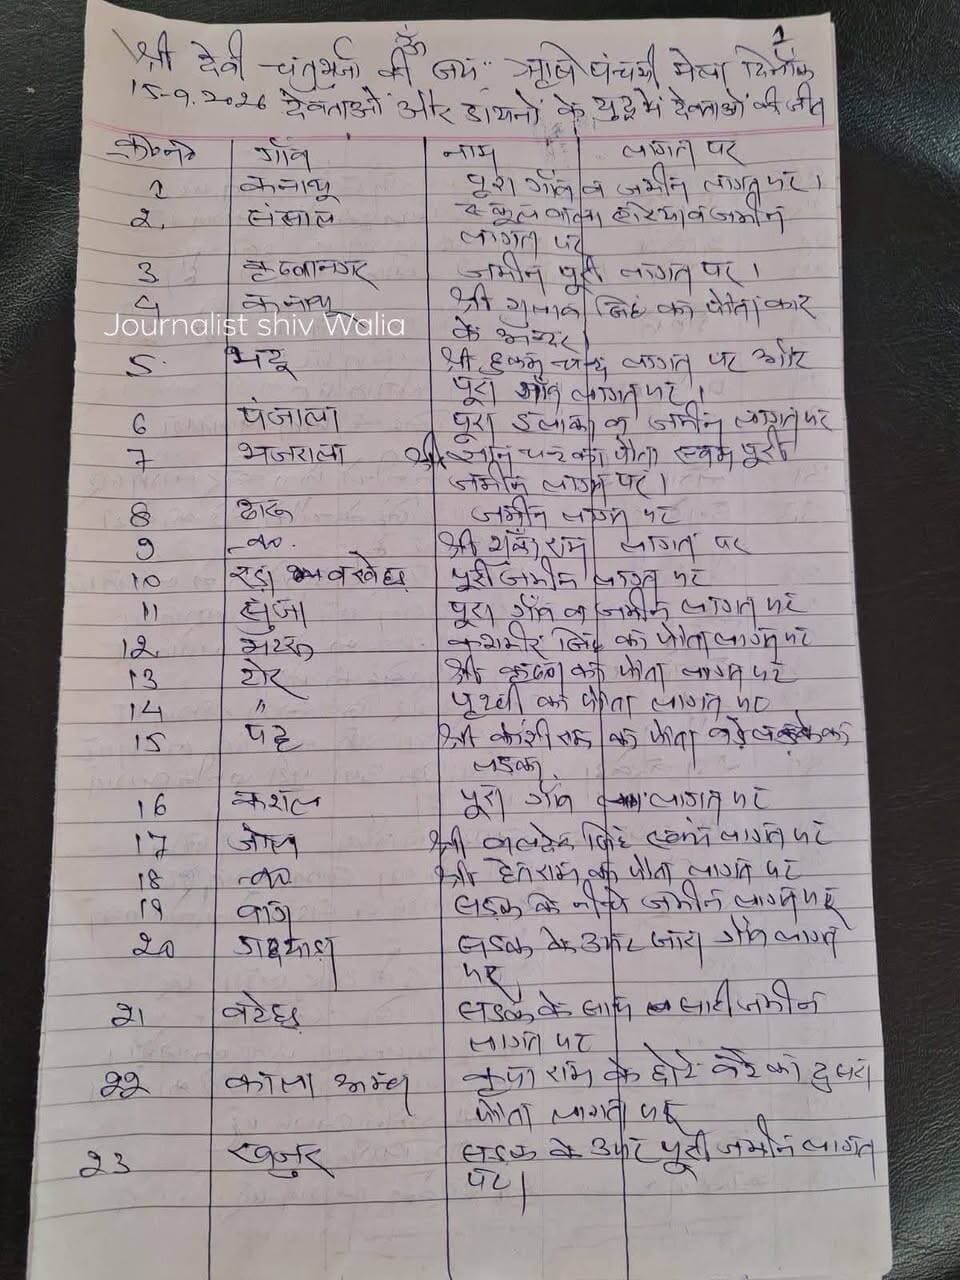 1
ॐ
श्री देवी चतुर्भुजा की जय ऋषि पंचमी मेला दिनांक
15-9.2026 देवताओं और डायनों के युद्ध में देवताओं की जीत
क्र०न० गाँव नाम लागत पर
1 कनायू पूरा गाँव व जमीन लागत पर।
2. संसाल स्कूल वाला हरिया व जमीन
लागत पर
3 जमीन पूरी लागत पर।
4 कनायू श्री गुलाब सिंह का पोता कार
के अन्दर।
Journalist shiv Walia
5. भटू श्री हुकम चन्द लागत पर और
पूरा गाँव लागत पर।
6 पंजाला पूरा इलाका व जमीन लागत पर
7 भजराला श्री ज्ञान चन्द का पोता पूरी
जमीन लागत पर।
8 जमीन लागत पर
9 श्री राम लागत पर
10 पूरी जमीन लागत पर
11 सुंजा पूरा गाँव व जमीन लागत पर
12 कशमीर सिंह का पोता लागत पर
13 शेर श्री कृष्ण का पोता लागत पर
14 " पृथ्वी का पोता लागत पर
15 श्री कांशी राम का पोता बड़े लड़के का
लड़का
16 कशल पूरा गाँव लागत पर
17 जोल श्री बलदेव सिंह लागत पर
18 श्री हेतराम का पोता लागत पर
19 बाग सड़क के नीचे जमीन लागत पर
20 सड़क के ऊपर सारा गाँव लागत
पर
21 बटेहड़ सड़क के साथ सारी जमीन
लागत पर
22 काला अम्ब कृपा राम के छोटे बेटे का दुसरा
पोता लागत पर
23 खजुर सड़क के ऊपर पूरी जमीन लागत
पर।